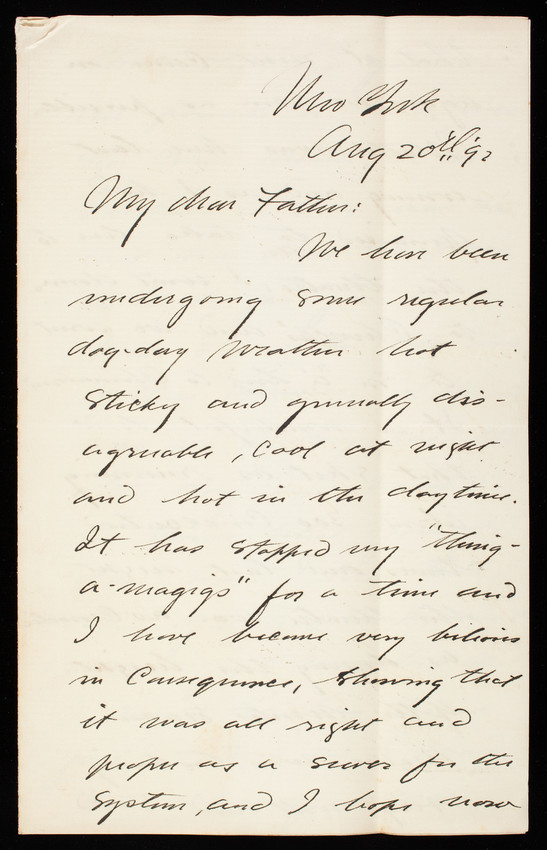 New York
Aug 20th '92
My dear Father:
We have been
undergoing some regular
dog-day weather hot
sticky and generally dis-
agreeable, cool at night
and hot in the daytime.
It has stopped my "thing-
a-magigs" for a time and
I have become very bilious
in consequence, showing that
it was all right and
proper as a sewer for the
system, and I hope now